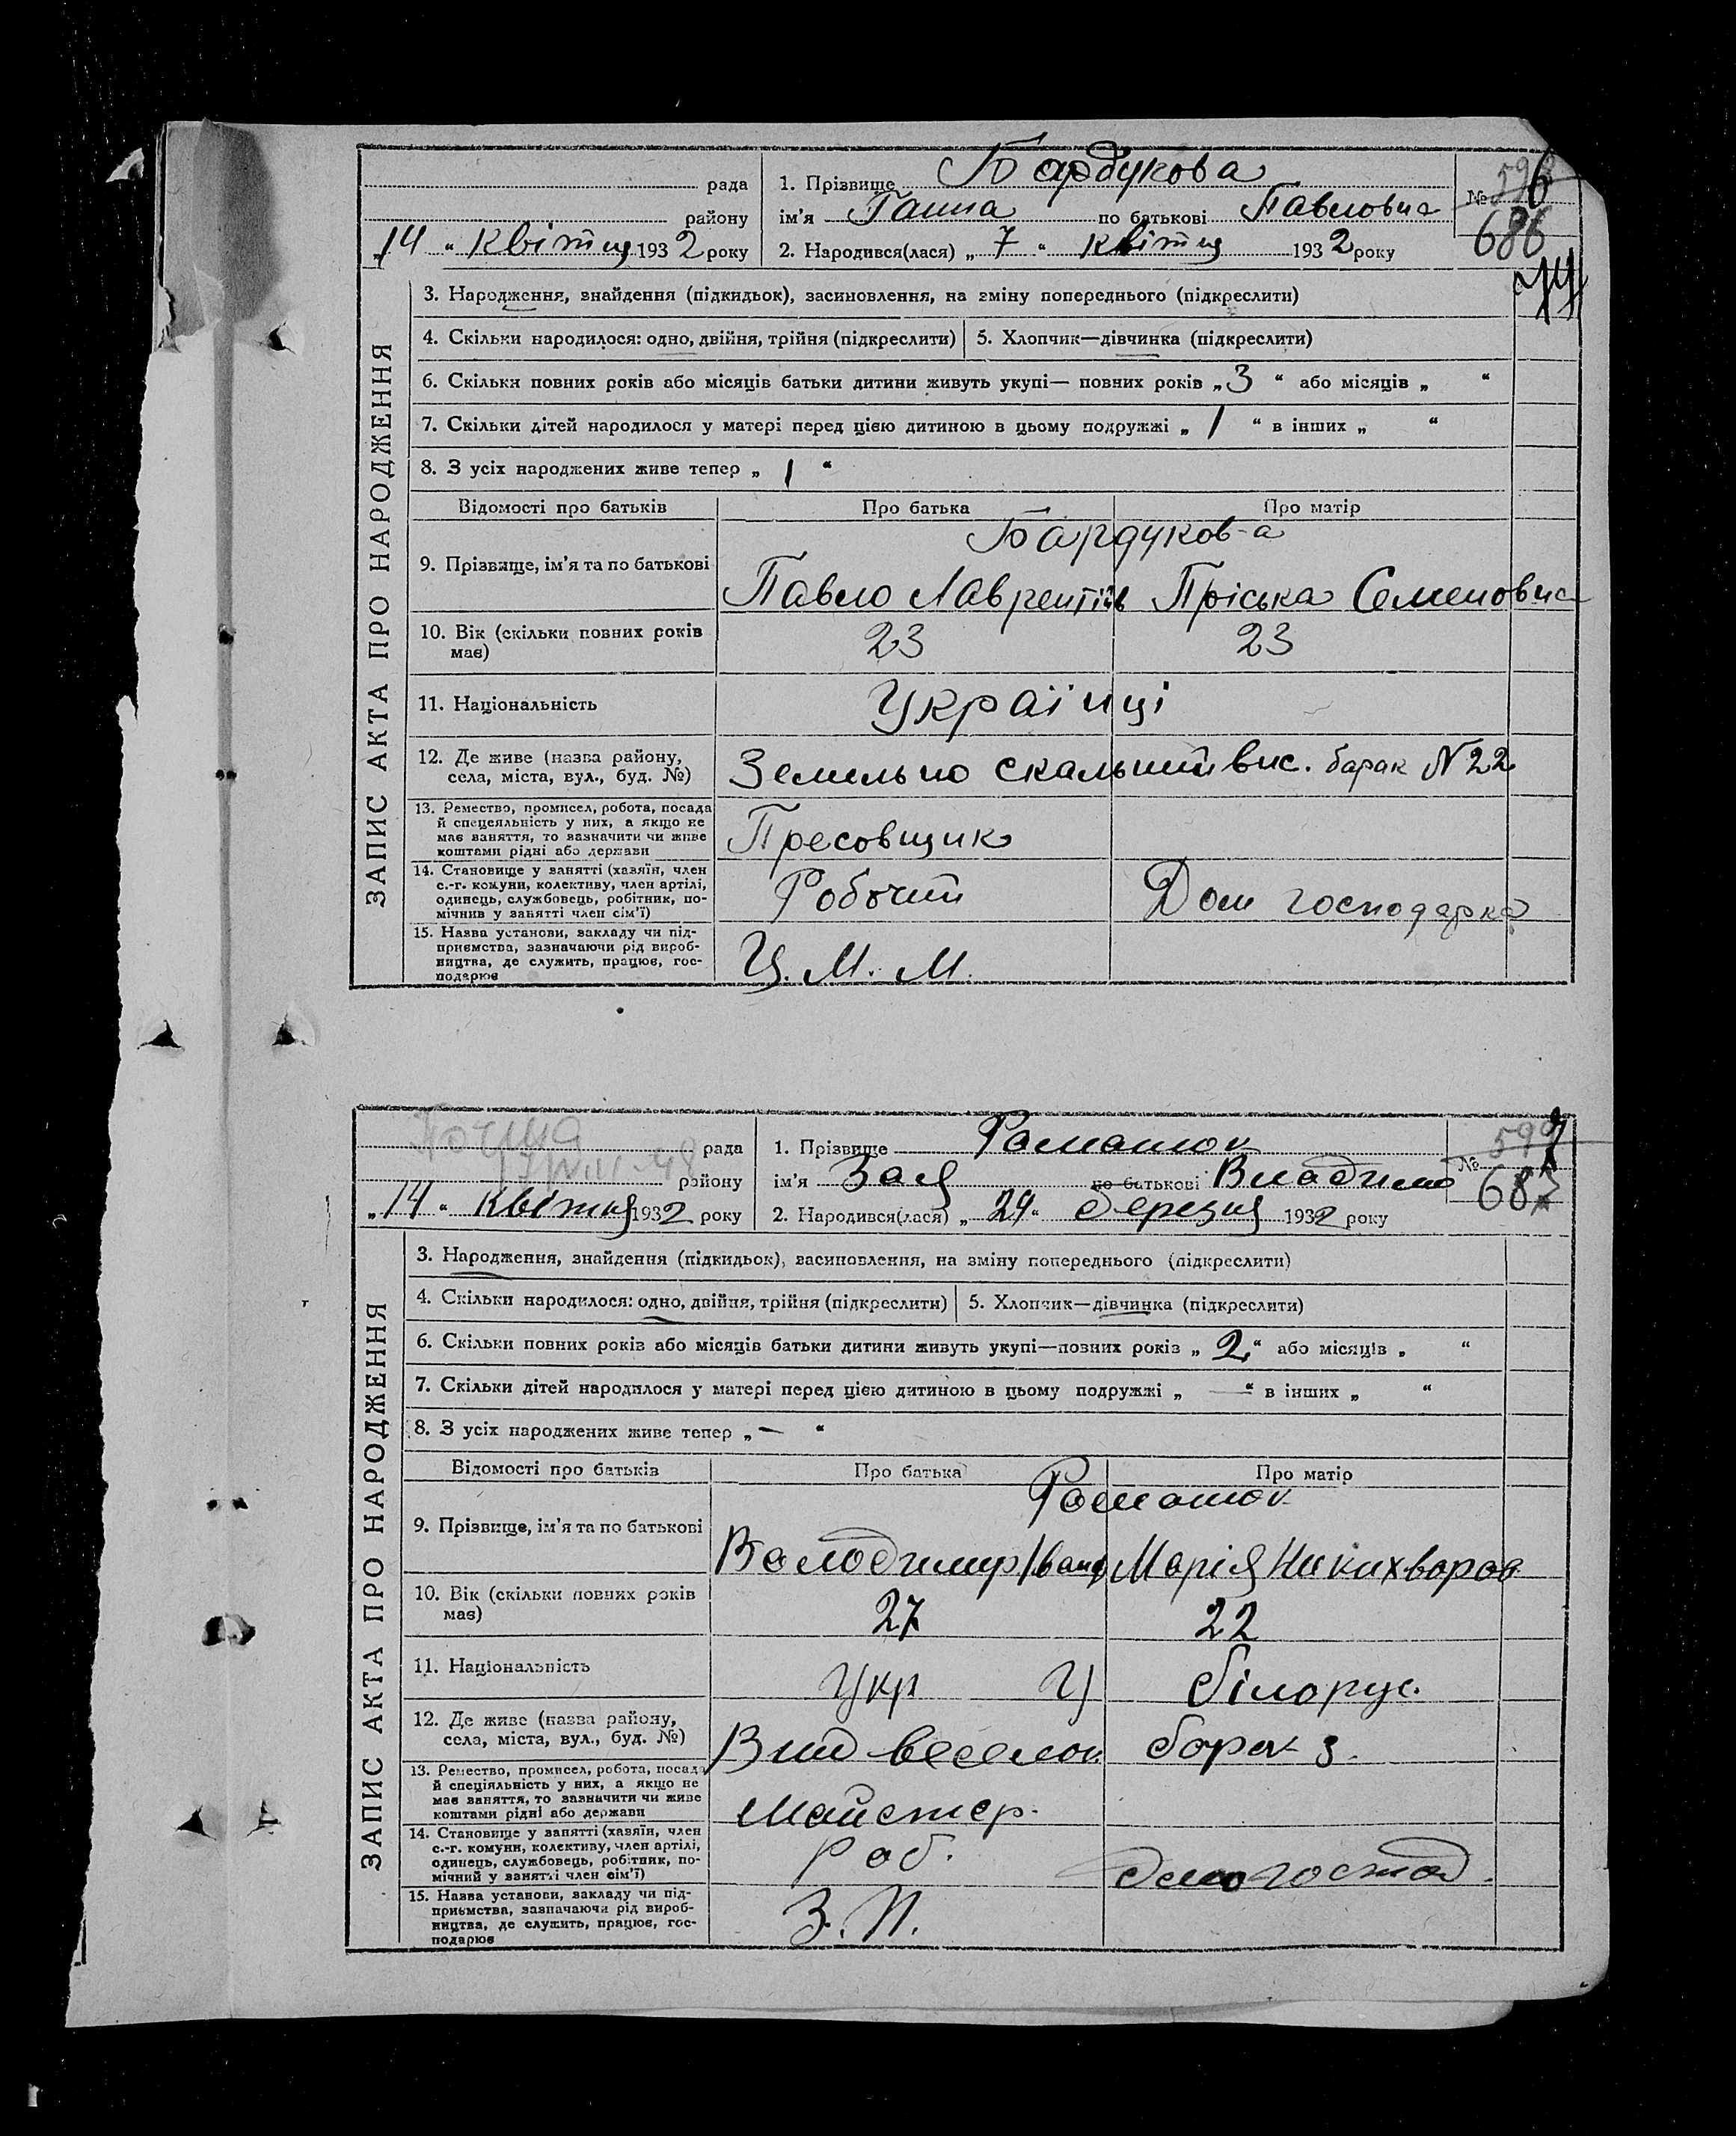 Бардукова
рада
1. Прізвище
№ 6
району
ім'я Ганна по батькові Павловна
686
„14“ квітня 1932 року
2. Народився(лася) „7“ квітня 1932 року
74
ЗАПИС АКТА ПРО НАРОДЖЕННЯ
3. Народження, знайдення (підкидьок), засиновлення, на зміну попереднього (підкреслити)
4. Скільки народилося: одно, двійня, трійня (підкреслити)
5. Хлопчик—дівчинка (підкреслити)
6. Скільки повних років або місяців батьки дитини живуть укупі— повних років „3“ або місяців „ “
7. Скільки дітей народилося у матері перед цією дитиною в цьому подружжі „1“ в інших „ “
8. З усіх народжених живе тепер „1“
Відомості про батьків
Про батька
Про матір
Бардуков-а
9. Прізвище, ім'я та по батькові
Павло Лаврентіїв Пріська Семеновна
10. Вік (скільки повних років
має)
23
23
11. Національність
Українці
12. Де живе (назва району,
села, міста, вул., буд. №)
Земельно скальний вис. барак N 22
13. Ремество, промисел, робота, посада
й спецеяльність у них, а якщо не
має заняття, то зазначити чи живе
коштами рідні або держави
Пресовщик
14. Становище у занятті (хазяїн, член
с.-г. комуни, колективу, член артілі,
одинець, службовець, робітник, по-
мічник у занятті член сім'ї)
Робочий
Дом господарка
15. Назва установи, закладу чи під-
приємства, зазначаючи рід вироб-
ництва, де служить, працює, гос-
подарює
Ц. М. М.
рада
1. Прізвище Романюк
599
району
ім'я Зая по батькові Владимо
№ 687
„14“ квітня 1932 року
2. Народився(лася) „24“ березня 1932 року
ЗАПИС АКТА ПРО НАРОДЖЕННЯ
3. Народження, знайдення (підкидьок), засиновлення, на зміну попереднього (підкреслити)
4. Скільки народилося: одно, двійня, трійня (підкреслити)
5. Хлопчик—дівчинка (підкреслити)
6. Скільки повних років або місяців батьки дитини живуть укупі—повних років „2“ або місяців „ “
7. Скільки дітей народилося у матері перед цією дитиною в цьому подружжі „—“ в інших „ “
8. З усіх народжених живе тепер „—“
Відомості про батьків
Про батька
Про матір
Романюк
9. Прізвище, ім'я та по батькові
Володимир Іван Марія Никихваров
10. Вік (скільки повних років
має)
27
22
11. Національність
Укр У
білорус.
12. Де живе (назва району,
села, міста, вул., буд. №)
барак 3.
13. Ремество, промисел, робота, посада
й спеціяльність у них, а якщо не
має заняття, то зазначити чи живе
коштами рідні або держави
Майстер.
14. Становище у занятті (хазяїн, член
с.-г. комуни, колективу, член артілі,
одинець, службовець, робітник, по-
мічний у занятті член сім'ї)
Роб.
домогоспод.
15. Назва установи, закладу чи під-
приємства, зазначаючи рід вироб-
ництва, де служить, працює, гос-
подарює
З. П.